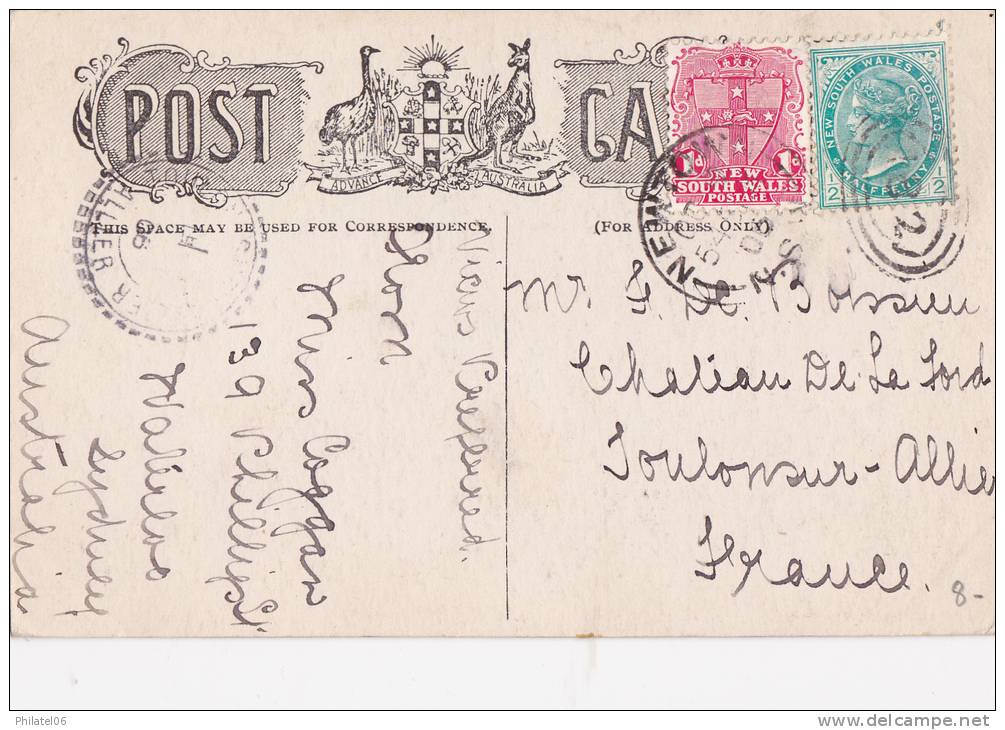 POST CA
ADVANCE AUSTRALIA
NEW
SOUTH WALES
POSTAGE
1d 1d
NEW SOUTH WALES POSTAGE
HALFPENNY
1/2 1/2
NEWTOWN
N.S.W
THIS SPACE MAY BE USED FOR CORRESPONDENCE.
(FOR ADDRESS ONLY).
Views Preferred.
From
Miss Coggan
139 Phillip St
Waterloo
Sydney
Australia
Mr F. De. Boissieu
Chateau De La Ford
Toulonsur-Allier
France.
8-
Philatel06
delcampe.net